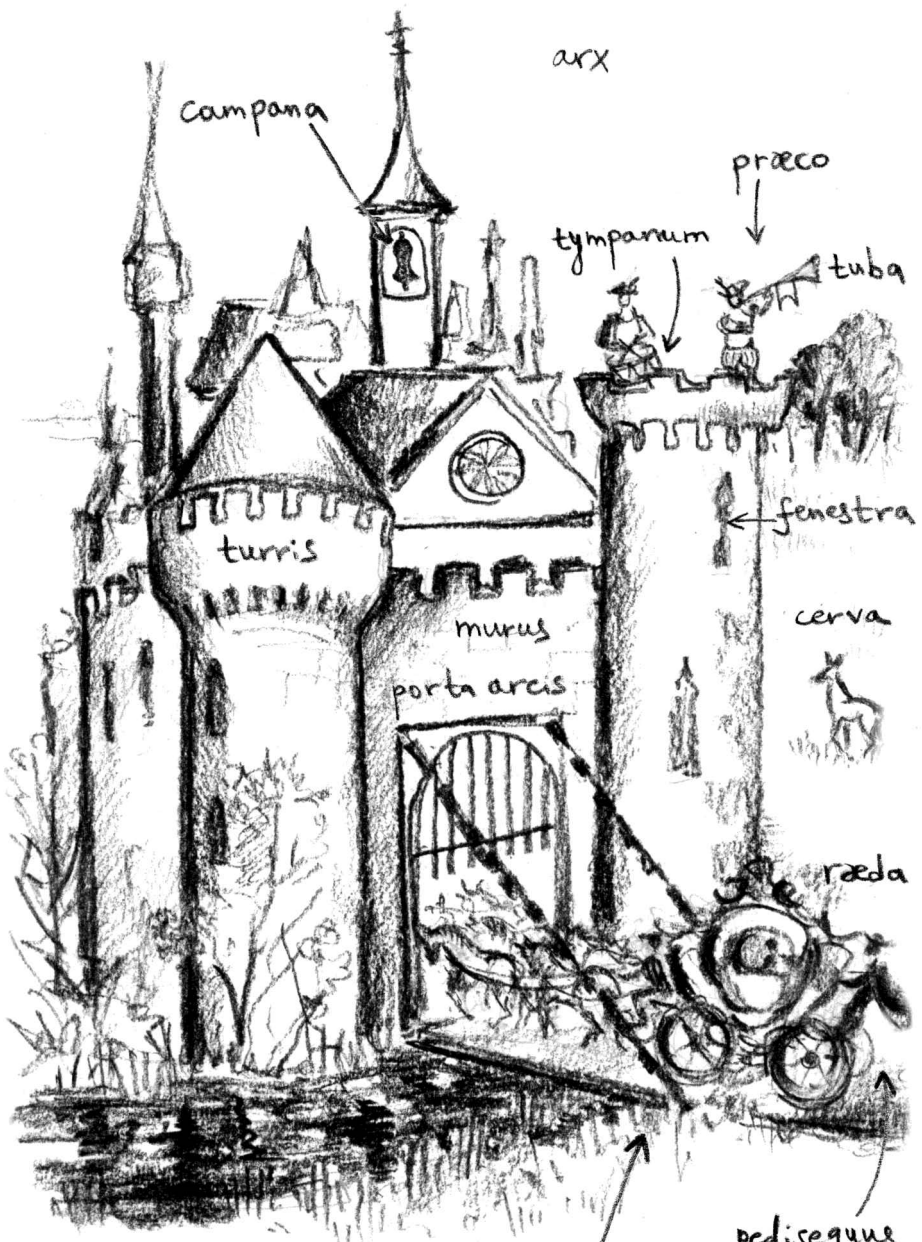 arx
campana
præco
tympanum
tuba
turris
fenestra
murus
cerva
porta arcis
ræda
pedisequus